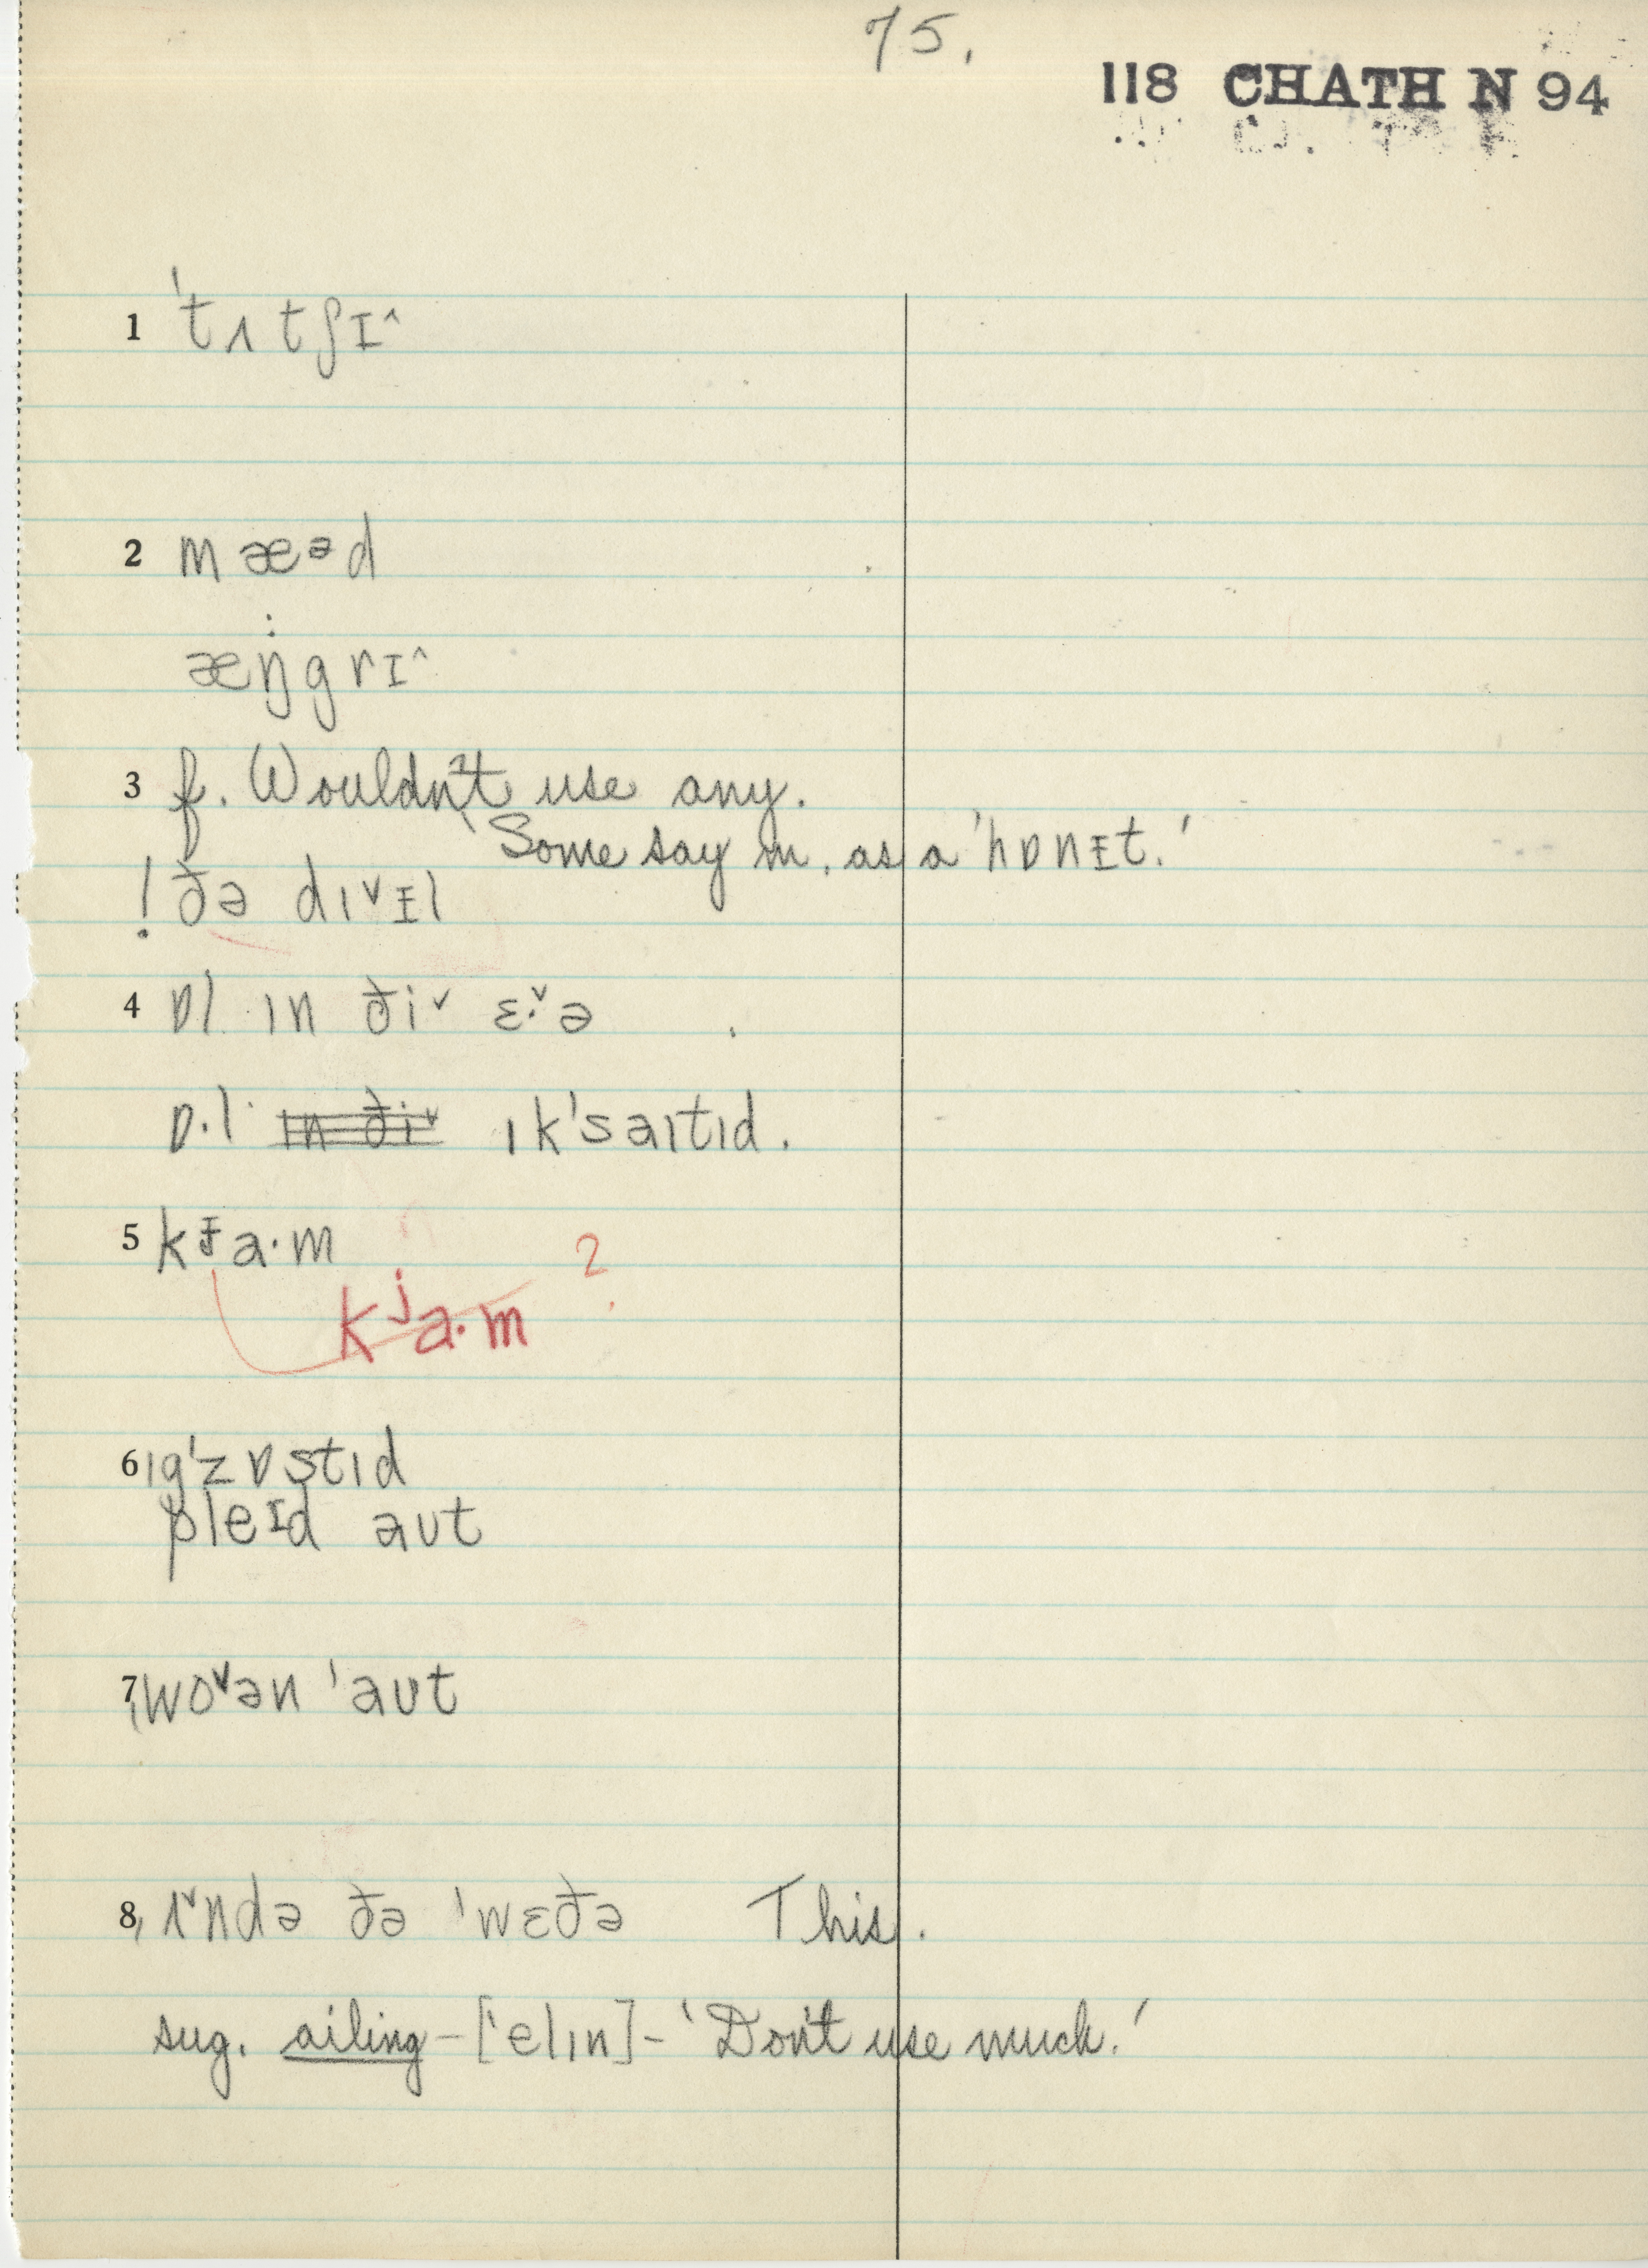 75.
118 CHATH N 94
1 'tʌtʃɪ^
2 mæᵊd
æŋ̇grɪ^
3 f. Wouldn't use any.
'Some say m. as a 'hɒnᵻt.'
! ðə dɪvᵻl
4 ɒl ɪn ðiˇ ɛ·ˇə
ɒ·l ɪn ðiˇ ɪk'saɪtɪd.
5 kɟa·m
kʲa·m ?
6 ɪg'zɒstɪd
pleɪd aʊt
7 ˌwoˇən 'aʊt
8 ˌʌˇndə ðə 'wɛðə This.
sug. ailing - ['elɪn] - 'Don't use much.'